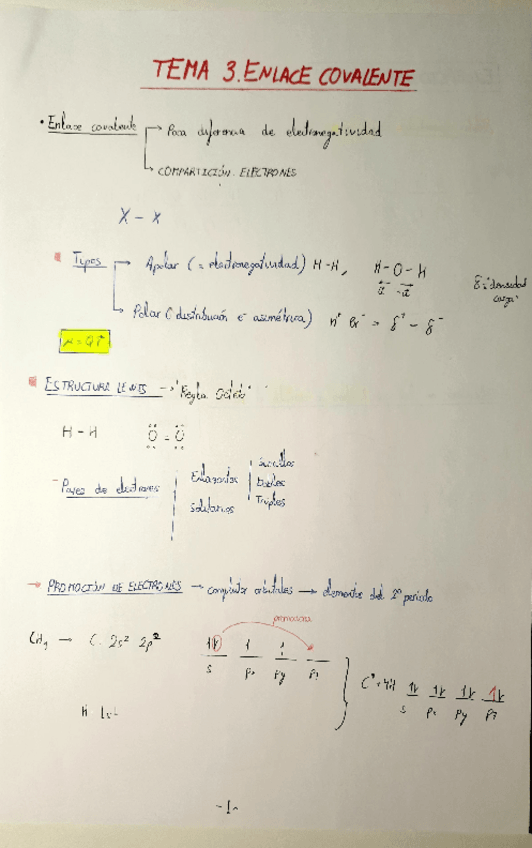 TEMA 3. ENLACE COVALENTE
• Enlace covalente → Poca diferencia de electronegatividad
→ COMPARTICIÓN ELECTRONES
X - X
Typos → Apolar (= electronegatividad) H-H, H-O-H
δ: densidad carga
→ Polar (distribución e⁻ asimétrica) H⁺ Br⁻ = δ⁺ - δ⁻
ESTRUCTURA LEWIS → "Regla Octeto"
H - H O = O
- Pares de electrones
Enlazantes
Sencillos
Dobles
Triples
Solitarios
→ PROMOCIÓN DE ELECTRONES → completar orbitales → elementos del 2º periodo
promociona
CH4 → C: 2s² 2p²
s px py pz
s px py pz
H 1s¹
-1-